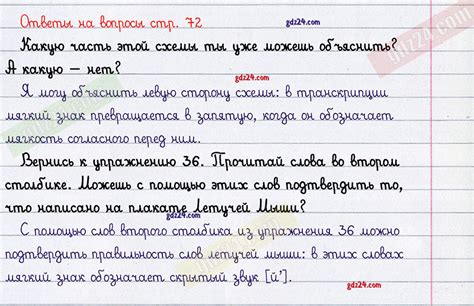 Ответы на вопросы стр. 72
gdz24.com
Какую часть этой схемы ты уже можешь объяснить?
gdz24.com
А какую — нет?
gdz24.com
Я могу объяснить левую сторону схемы: в транскрипции
мягкий знак превращается в запятую, когда он обозначает
мягкость согласного перед ним.
gdz24.com
Вернись к упражнению 36. Прочитай слова во втором
столбике. Можешь с помощью этих слов подтвердить то,
что написано на плакате Летучей Мыши?
gdz24.com
С помощью слов второго столбика из упражнения 36 можно
подтвердить правильность слов летучей мыши: в этих словах
мягкий знак обозначает скрытый звук [й’].
gdz24.com